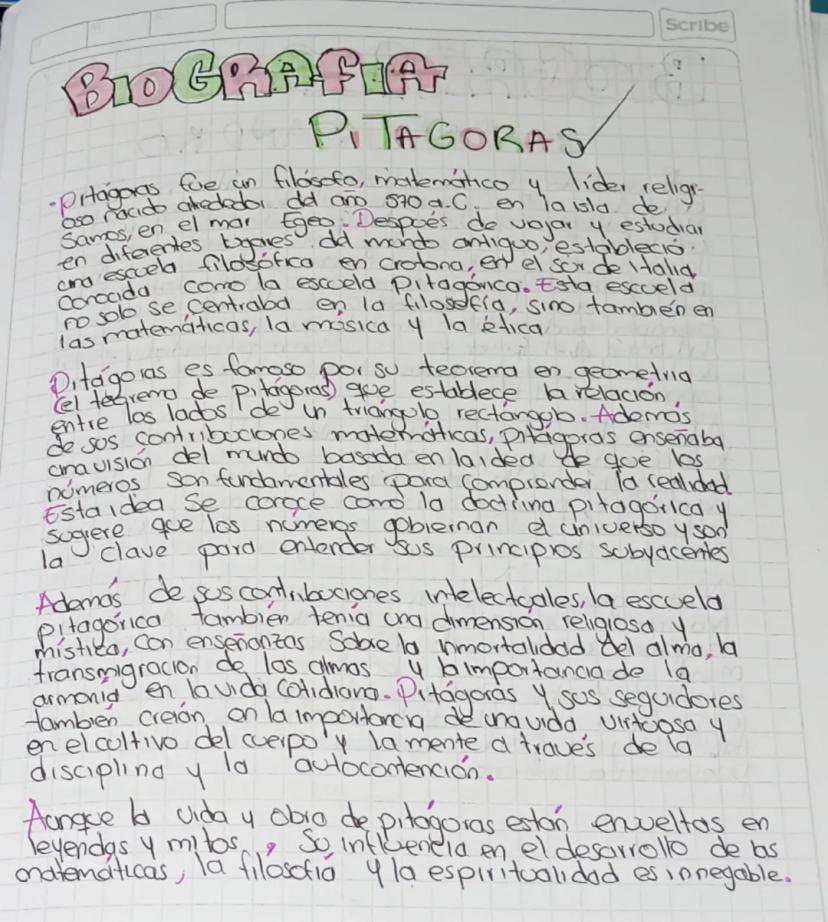 Scribe
BIOGRAFIA
PITAGORAS
·Pitágoras fue un filósofo, matemático y líder religi-
oso nacido alrededor del año 570 a.C. en la isla de
Samos, en el mar Egeo. Después de viajar y estudiar
en diferentes lugares del mundo antiguo, estableció
una escuela filosófica en crotona, en el sur de Italia,
conocida como la escuela Pitagórica. Esta escuela
no solo se centraba en la filosofía, sino también en
las matemáticas, la música y la ética
Pitágoras es famoso por su teorema en geometria
(el teorema de Pitágoras) que establece la relación
entre los lados de un triángulo rectángulo. Además
de sus contribuciones matemáticas, Pitágoras enseñaba
una visión del mundo basada en la idea de que los
números son fundamentales para comprender la realidad
Esta idea se conoce como la doctrina pitagórica y
sugiere que los números gobiernan el universo y son
la clave para entender sus principios subyacentes
Además de sus contribuciones intelectuales, la escuela
pitagórica también tenía una dimensión religiosa y
mística, con enseñanzas sobre la inmortalidad del alma, la
transmigración de las almas y la importancia de la
armonía en la vida cotidiana. Pitágoras y sus seguidores
también creían en la importancia de una vida virtuosa y
en el cultivo del cuerpo y la mente a través de la
disciplina y la autocontención.
Aunque la vida y obra de pitágoras están envueltas en
leyendas y mitos, su influencia en el desarrollo de las
matemáticas, la filosofía y la espiritualidad es innegable.